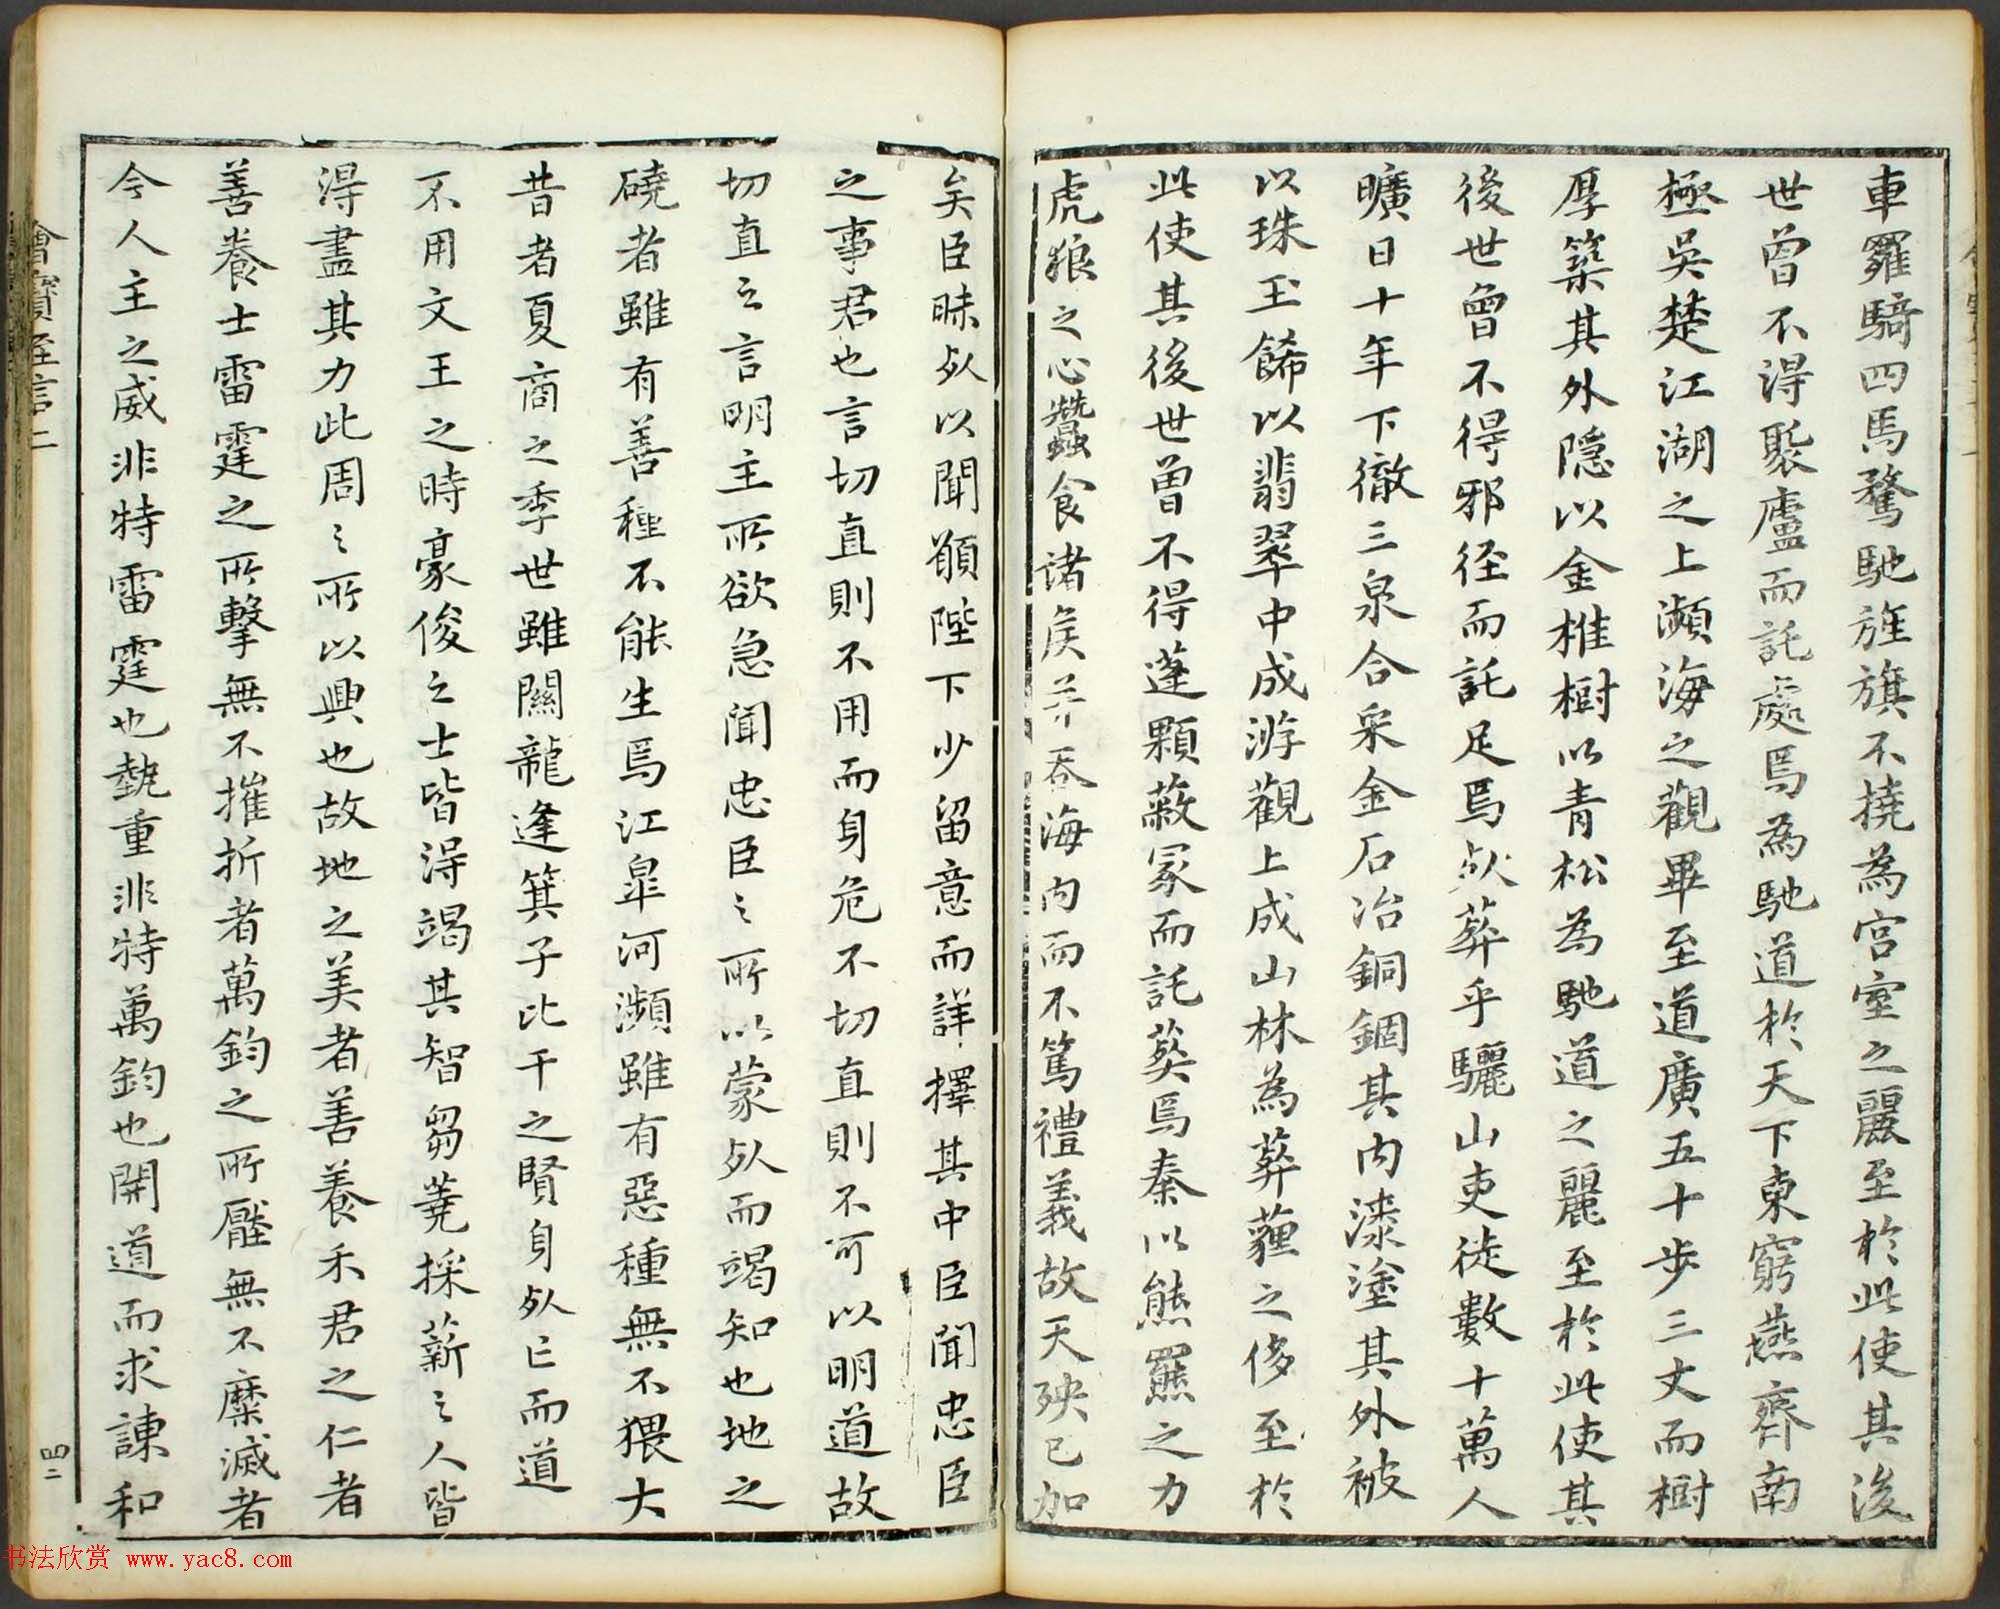 車羅騎四馬鶩馳旌旗不撓為宮室之麗至於此使其後
世曾不得聚廬而託處焉為馳道於天下東窮燕齊南
極吳楚江湖之上瀕海之觀畢至道廣五十步三丈而樹
厚築其外隱以金椎樹以青松為馳道之麗至於此使其
後世曾不得邪径而託足焉死葬乎驪山吏徒數十萬人
曠日十年下徹三泉合采金石冶銅錮其內漆塗其外被
以珠玉餙以翡翠中成游觀上成山林為葬薶之侈至於
此使其後世曾不得蓬顆蔽冢而託葬焉秦以熊羆之力
虎狼之心蠶食諸矦并吞海內而不篤禮義故天殃已加
矣臣昧死以聞願陛下少留意而詳擇其中臣聞忠臣
之事君也言切直則不用而身危不切直則不可以明道故
切直之言明主所欲急聞忠臣之所以蒙死而竭知也地之
磽者雖有善種不能生焉江皐河瀕雖有惡種無不猥大
昔者夏商之季世雖關龍逢箕子比干之賢身死亡而道
不用文王之時豪俊之士皆淂竭其智芻蕘採薪之人皆
淂盡其力此周之所以興也故地之美者善養禾君之仁者
善養士雷霆之所擊無不摧折者萬鈞之所壓無不糜滅者
今人主之威非特雷霆也埶重非特萬鈞也開道而求諫和
會寶至言二
四二
书法欣赏 www.yac8.com